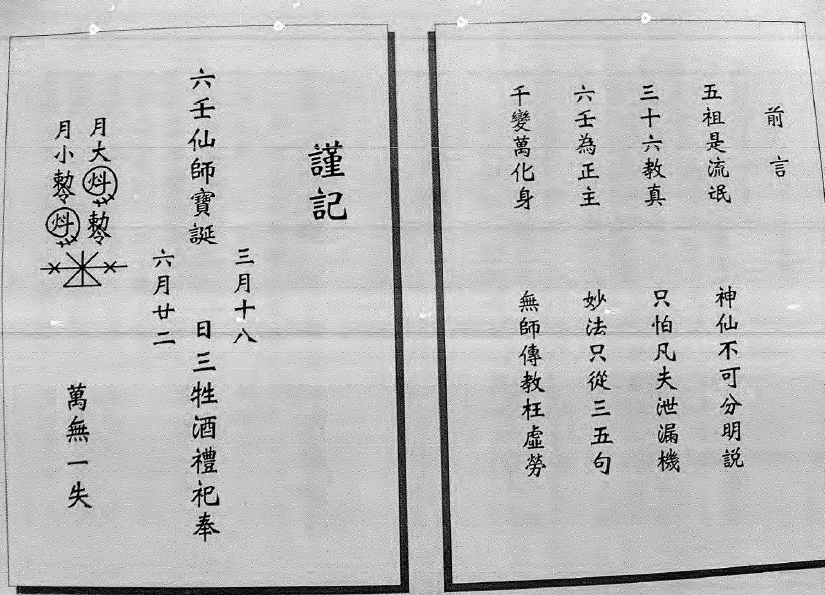 前言
五祖是流氓　神仙不可分明説
三十六教真　只怕凡夫泄漏機
六壬為正主　妙法只從三五句
千變萬化身　無師傳教枉虛勞
謹記
三月十八
六壬仙師寶誕　日三牲酒禮祀奉
六月廿二
月大
月小
萬無一失